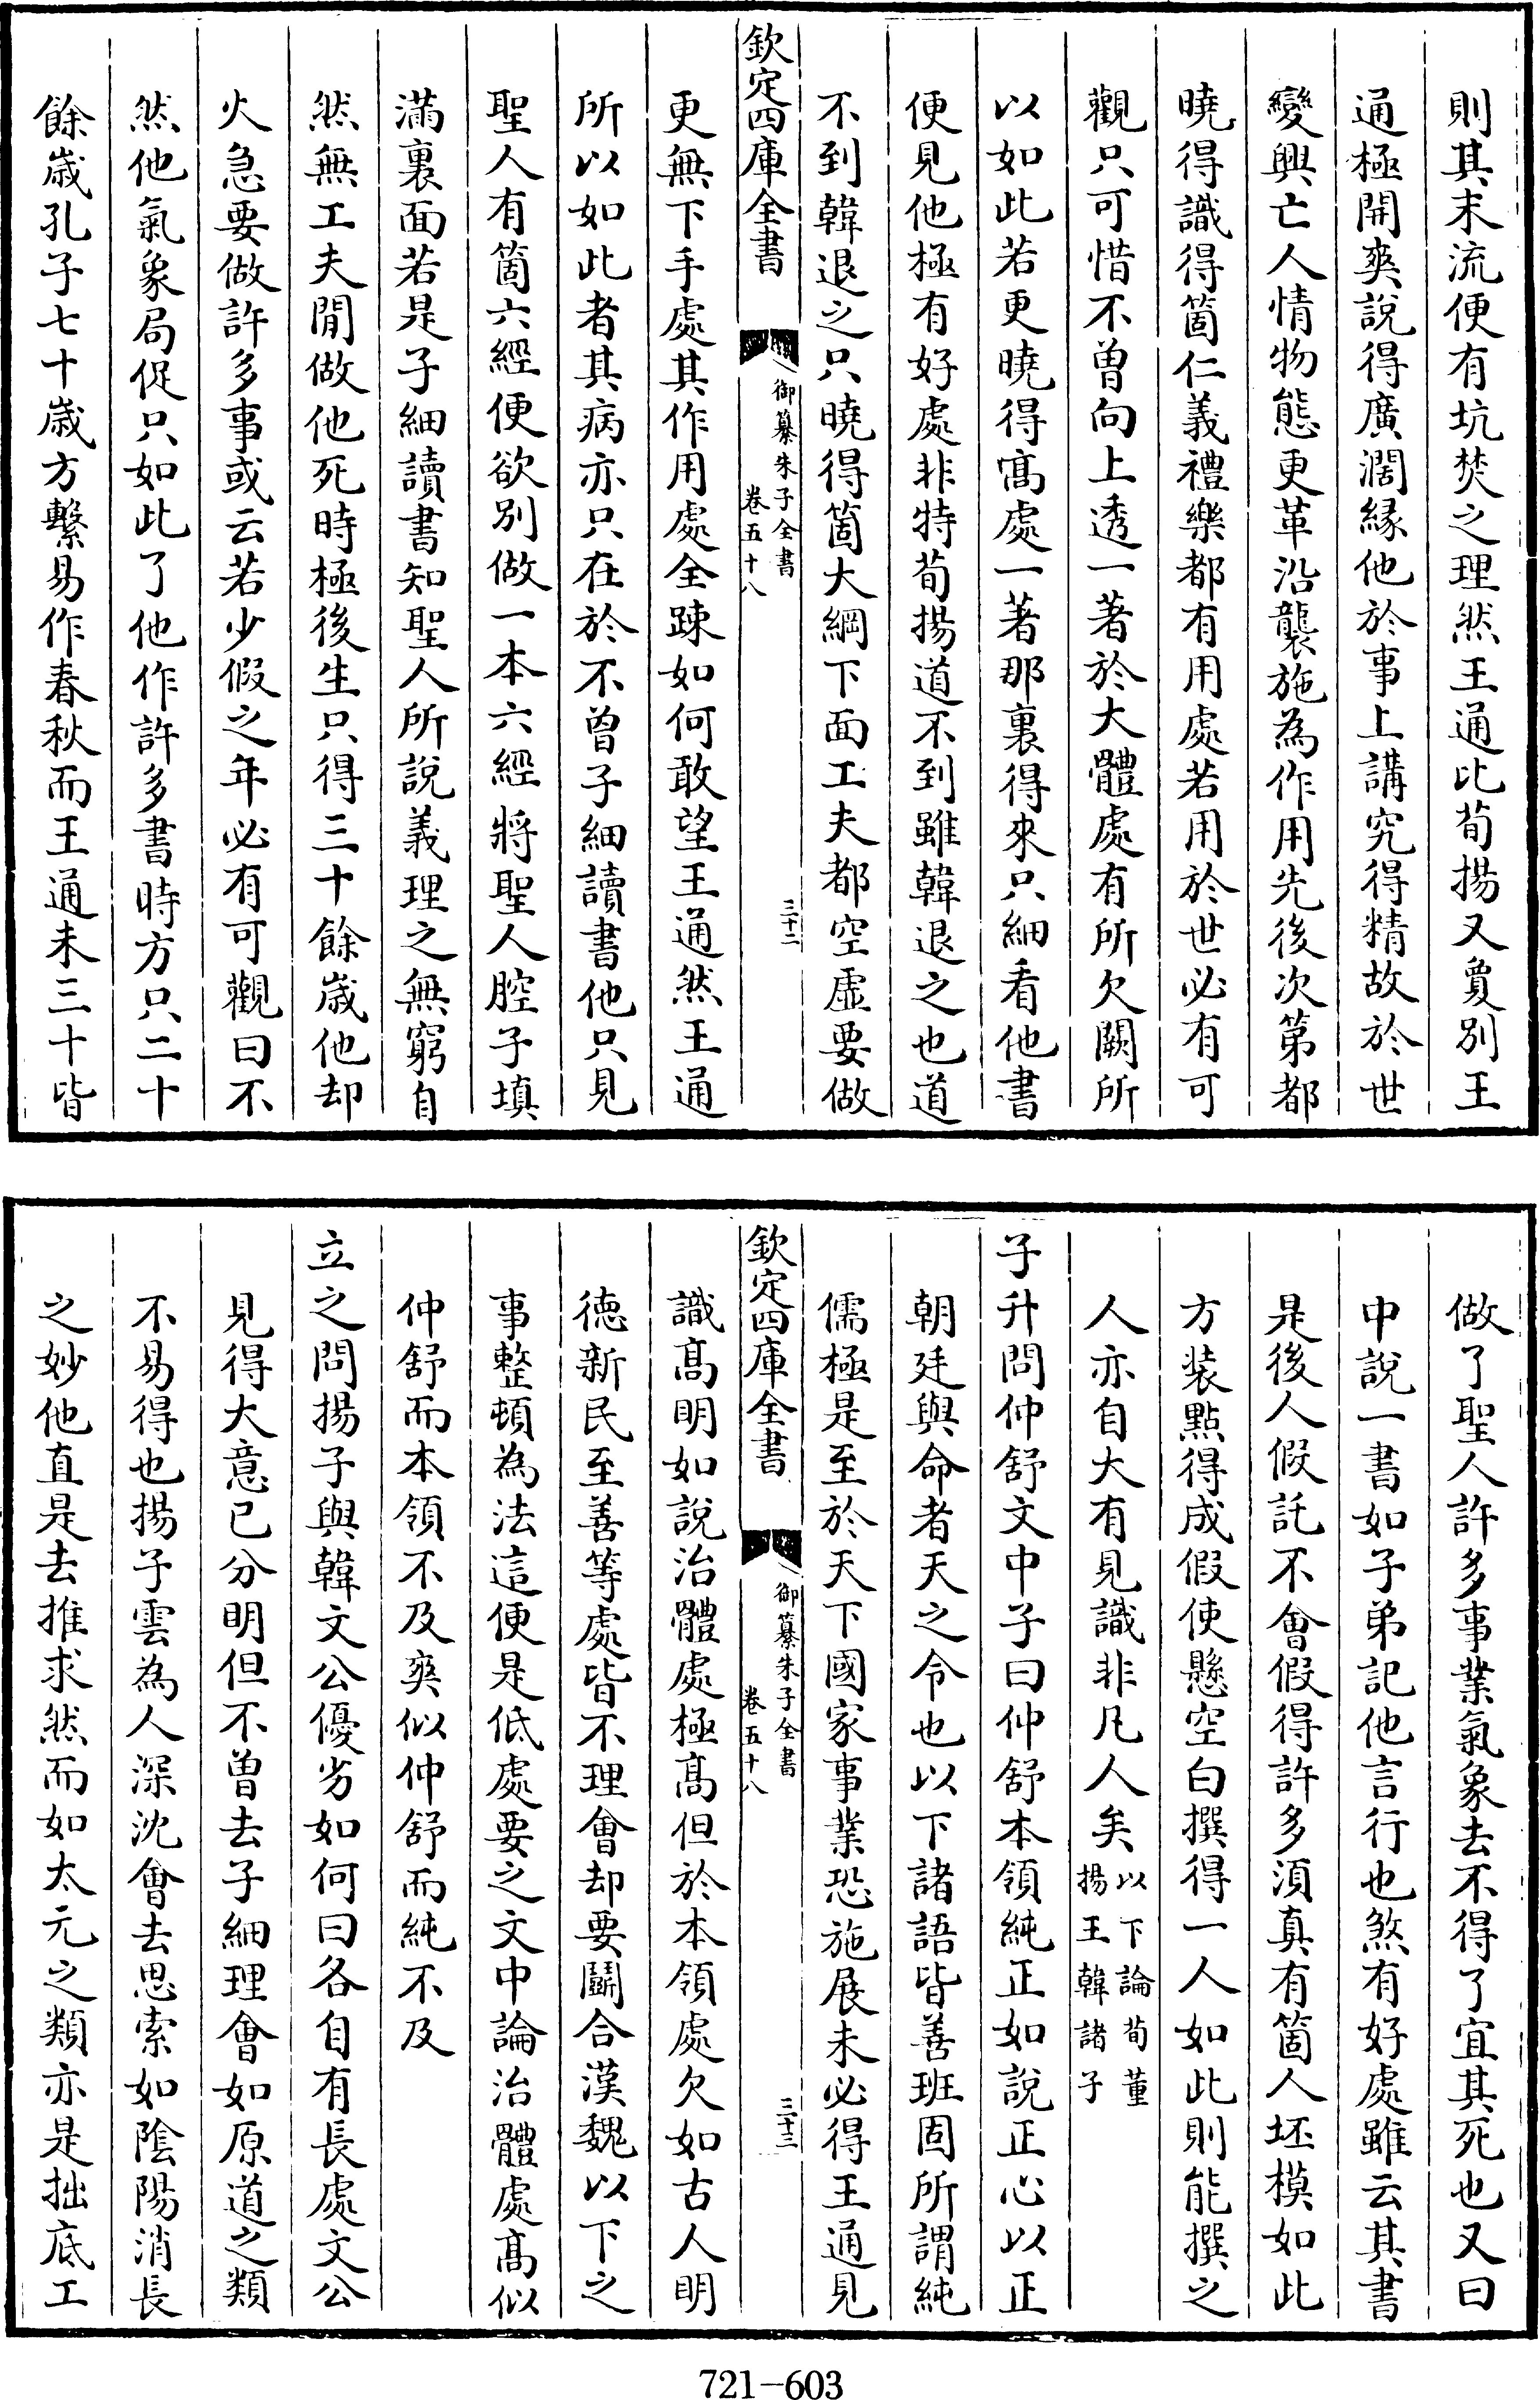 則其末流便有坑焚之理然王通比荀揚又敻別王
通極開爽說得廣濶緣他於事上講究得精故於世
變興亡人情物態更革沿襲施為作用先後次第都
曉得識得箇仁義禮樂都有用處若用於世必有可
觀只可惜不曾向上透一著於大體處有所欠闕所
以如此若更曉得髙處一著那裏得來只細看他書
便見他極有好處非特荀揚道不到雖韓退之也道
不到韓退之只曉得箇大綱下面工夫都空虛要做
欽定四庫全書
御纂朱子全書
卷五十八
三十二
更無下手處其作用處全踈如何敢望王通然王通
所以如此者其病亦只在於不曾子細讀書他只見
聖人有箇六經便欲別做一本六經將聖人腔子填
滿裏面若是子細讀書知聖人所說義理之無窮自
然無工夫閒做他死時極後生只得三十餘歲他却
火急要做許多事或云若少假之年必有可觀曰不
然他氣象局促只如此了他作許多書時方只二十
餘歲孔子七十歲方繫易作春秋而王通未三十皆
做了聖人許多事業氣象去不得了宜其死也又曰
中說一書如子弟記他言行也煞有好處雖云其書
是後人假託不會假得許多須真有箇人坯模如此
方装點得成假使懸空白撰得一人如此則能撰之
人亦自大有見識非凡人矣
以下論荀董
揚王韓諸子
子升問仲舒文中子曰仲舒本領純正如說正心以正
朝廷與命者天之令也以下諸語皆善班固所謂純
儒極是至於天下國家事業恐施展未必得王通見
欽定四庫全書
御纂朱子全書
卷五十八
三十三
識髙明如說治體處極髙但於本領處欠如古人明
徳新民至善等處皆不理會却要鬭合漢魏以下之
事整頓為法這便是低處要之文中論治體處髙似
仲舒而本領不及爽似仲舒而純不及
立之問揚子與韓文公優劣如何曰各自有長處文公
見得大意已分明但不曾去子細理會如原道之類
不易得也揚子雲為人深沈會去思索如隂陽消長
之妙他直是去推求然而如太元之類亦是拙底工
721-603